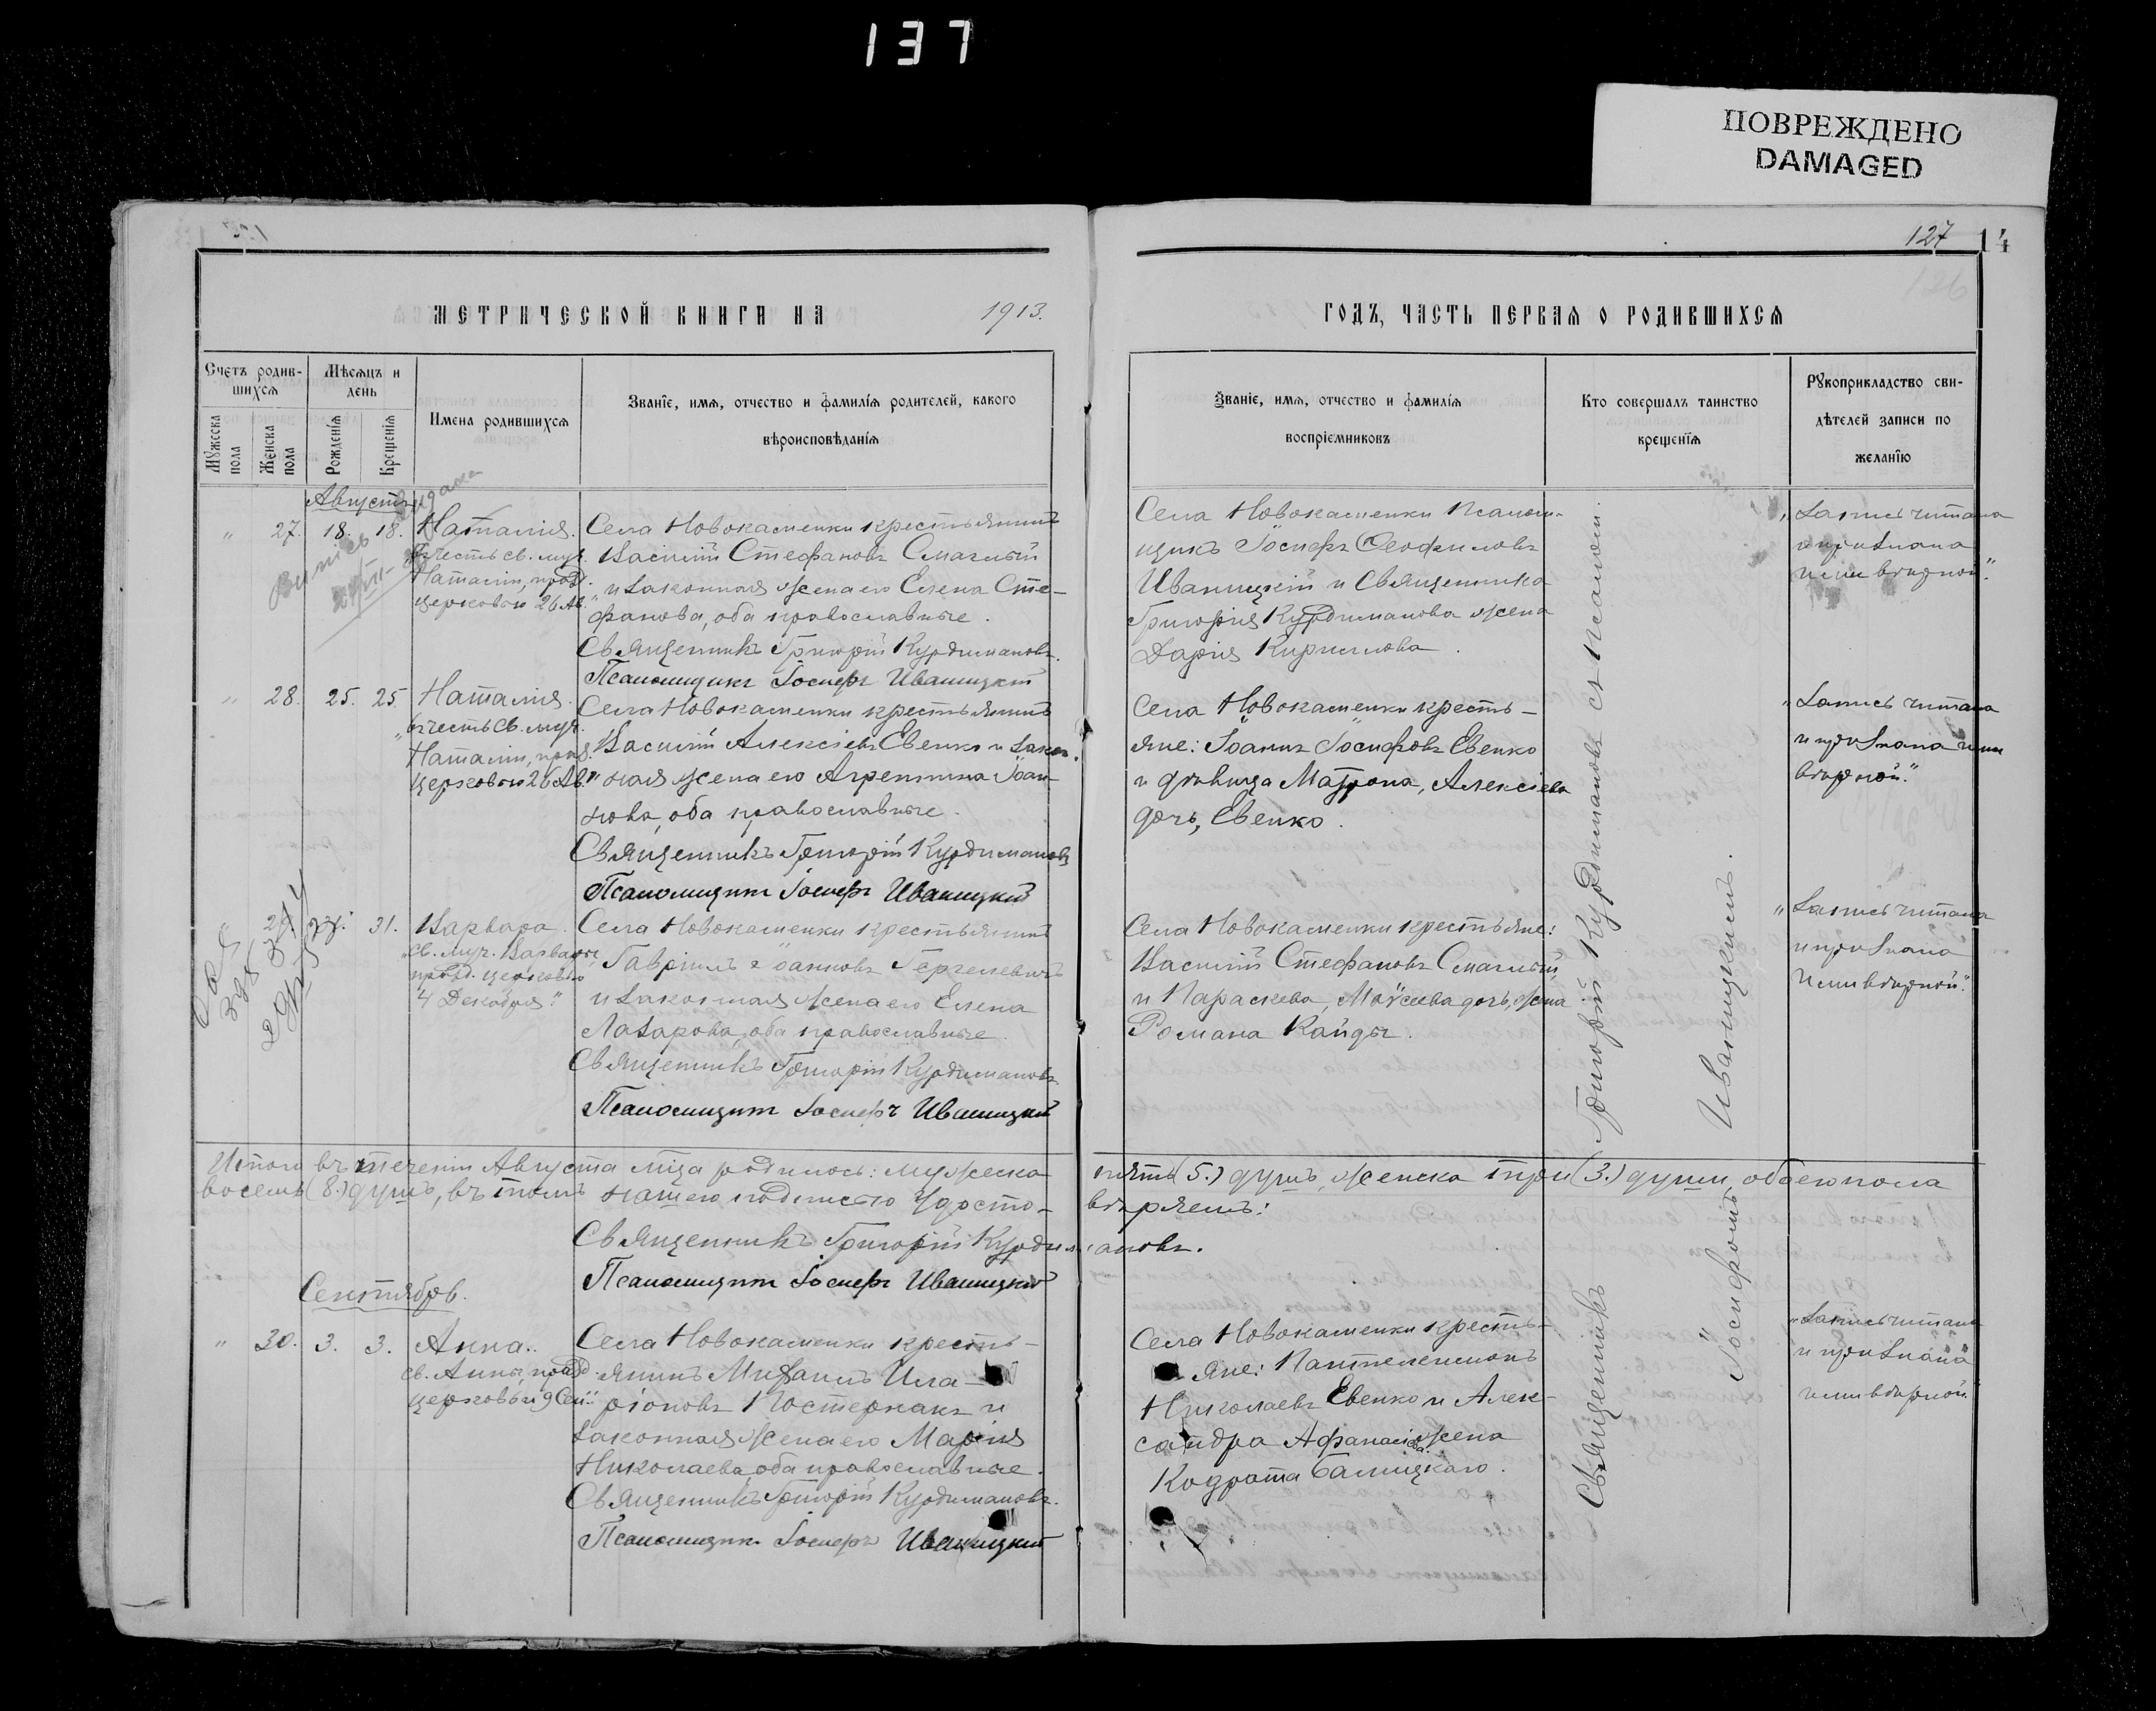 137
ПОВРЕЖДЕНО
DAMAGED
127
14
126
МЕТРИЧЕСКОЙ КНИГИ НА 1913.
ГОДЪ, ЧАСТЬ ПЕРВАЯ О РОДИВШИХСЯ
Счетъ родив-
шихся
Мѣсяцъ и
день
Мужеска
пола
Женска
пола
Рожденія
Крещенія
Имена родившихся
Званіе, имя, отчество и фамилія родителей, какого
вѣроисповѣданія
Званіе, имя, отчество и фамилія
воспріемниковъ
Кто совершалъ таинство
крещенія
Рукоприкладство сви-
дѣтелей записи по
желанію
Августъ
" 27. 18. 18.
Наталія.
въ честь св. муч.
Наталіи, празд.
церковью 26 Ав."
Села Новокаменки крестьянинъ
Василій Стефановъ Смаглый
и законная жена его Елена Сте-
фанова, оба православные.
Священникъ Григорій Курдимановъ.
Псаломщикъ Іосифъ Иваницкій
Села Новокаменки псалом-
щикъ Іосифъ Ѳеофиловъ
Иваницкій и Священника
Григорія Курдиманова жена
Дарія Кириллова.
"Запись читана
и признана
ими вѣрной."
" 28. 25. 25.
Наталія.
"въ честь св. муч.
Наталіи, празд.
церковью 26 Ав."
Села Новокаменки крестьянинъ
Василій Алексіевъ Евенко и закон-
ная жена его Агрепина Іоан-
нова, оба православные.
Священникъ Григорій Курдимановъ
Псаломщикъ Іосифъ Иваницкій
Села Новокаменки кресть-
яне: Іоаннъ Іосифовъ Евенко
и дѣвица Матрона, Алексіева
дочь, Евенко.
"Запись читана
и признана ими
вѣрной."
" 29 31.
Варвара.
"св. муч. Варвары,
празд. церковью
4 Декабря."
Села Новокаменки крестьянинъ
Гавріилъ Іоанновъ Гергелевичъ
и законная жена его Елена
Лазарова, оба православные.
Священникъ Григорій Курдимановъ
Псаломщикъ Іосифъ Иваницкій
Села Новокаменки крестьяне:
Василій Стефановъ Смаглый,
и Параскева, Моѵсеева дочь, жена
Романа Кайды.
"Запись читана
и признана
ими вѣрной."
Священникъ Григорій Курдимановъ съ псалом.
Іосифомъ Иваницкимъ.
Итого въ теченіи Августа мѣсяца родилось: мужеска пять (5.) душъ, женска три (3.) души, обоего пола
восемь (8.) душъ, въ томъ нашею подписью удосто-вѣряемъ:
Священникъ Григорій Курдимановъ.
Псаломщикъ Іосифъ Иваницкій
Сентябрь.
" 30. 3. 3.
Анна.
св. Анны, празд.
церковью 9 Сен."
Села Новокаменки кресть-
янинъ Мифаилъ Ила-
ріоновъ Постернакъ и
законная жена его Марія
Николаева, оба православные.
Священникъ Григорій Курдимановъ.
Псаломщикъ Іосифъ Иваницкій
Села Новокаменки кресть-
яне: Пантелеимонъ
Николаевъ Евенко и Алек-
сандра Афанасіева жена
Кодрата Балицкаго.
"Запись читана
и признана
ими вѣрной."